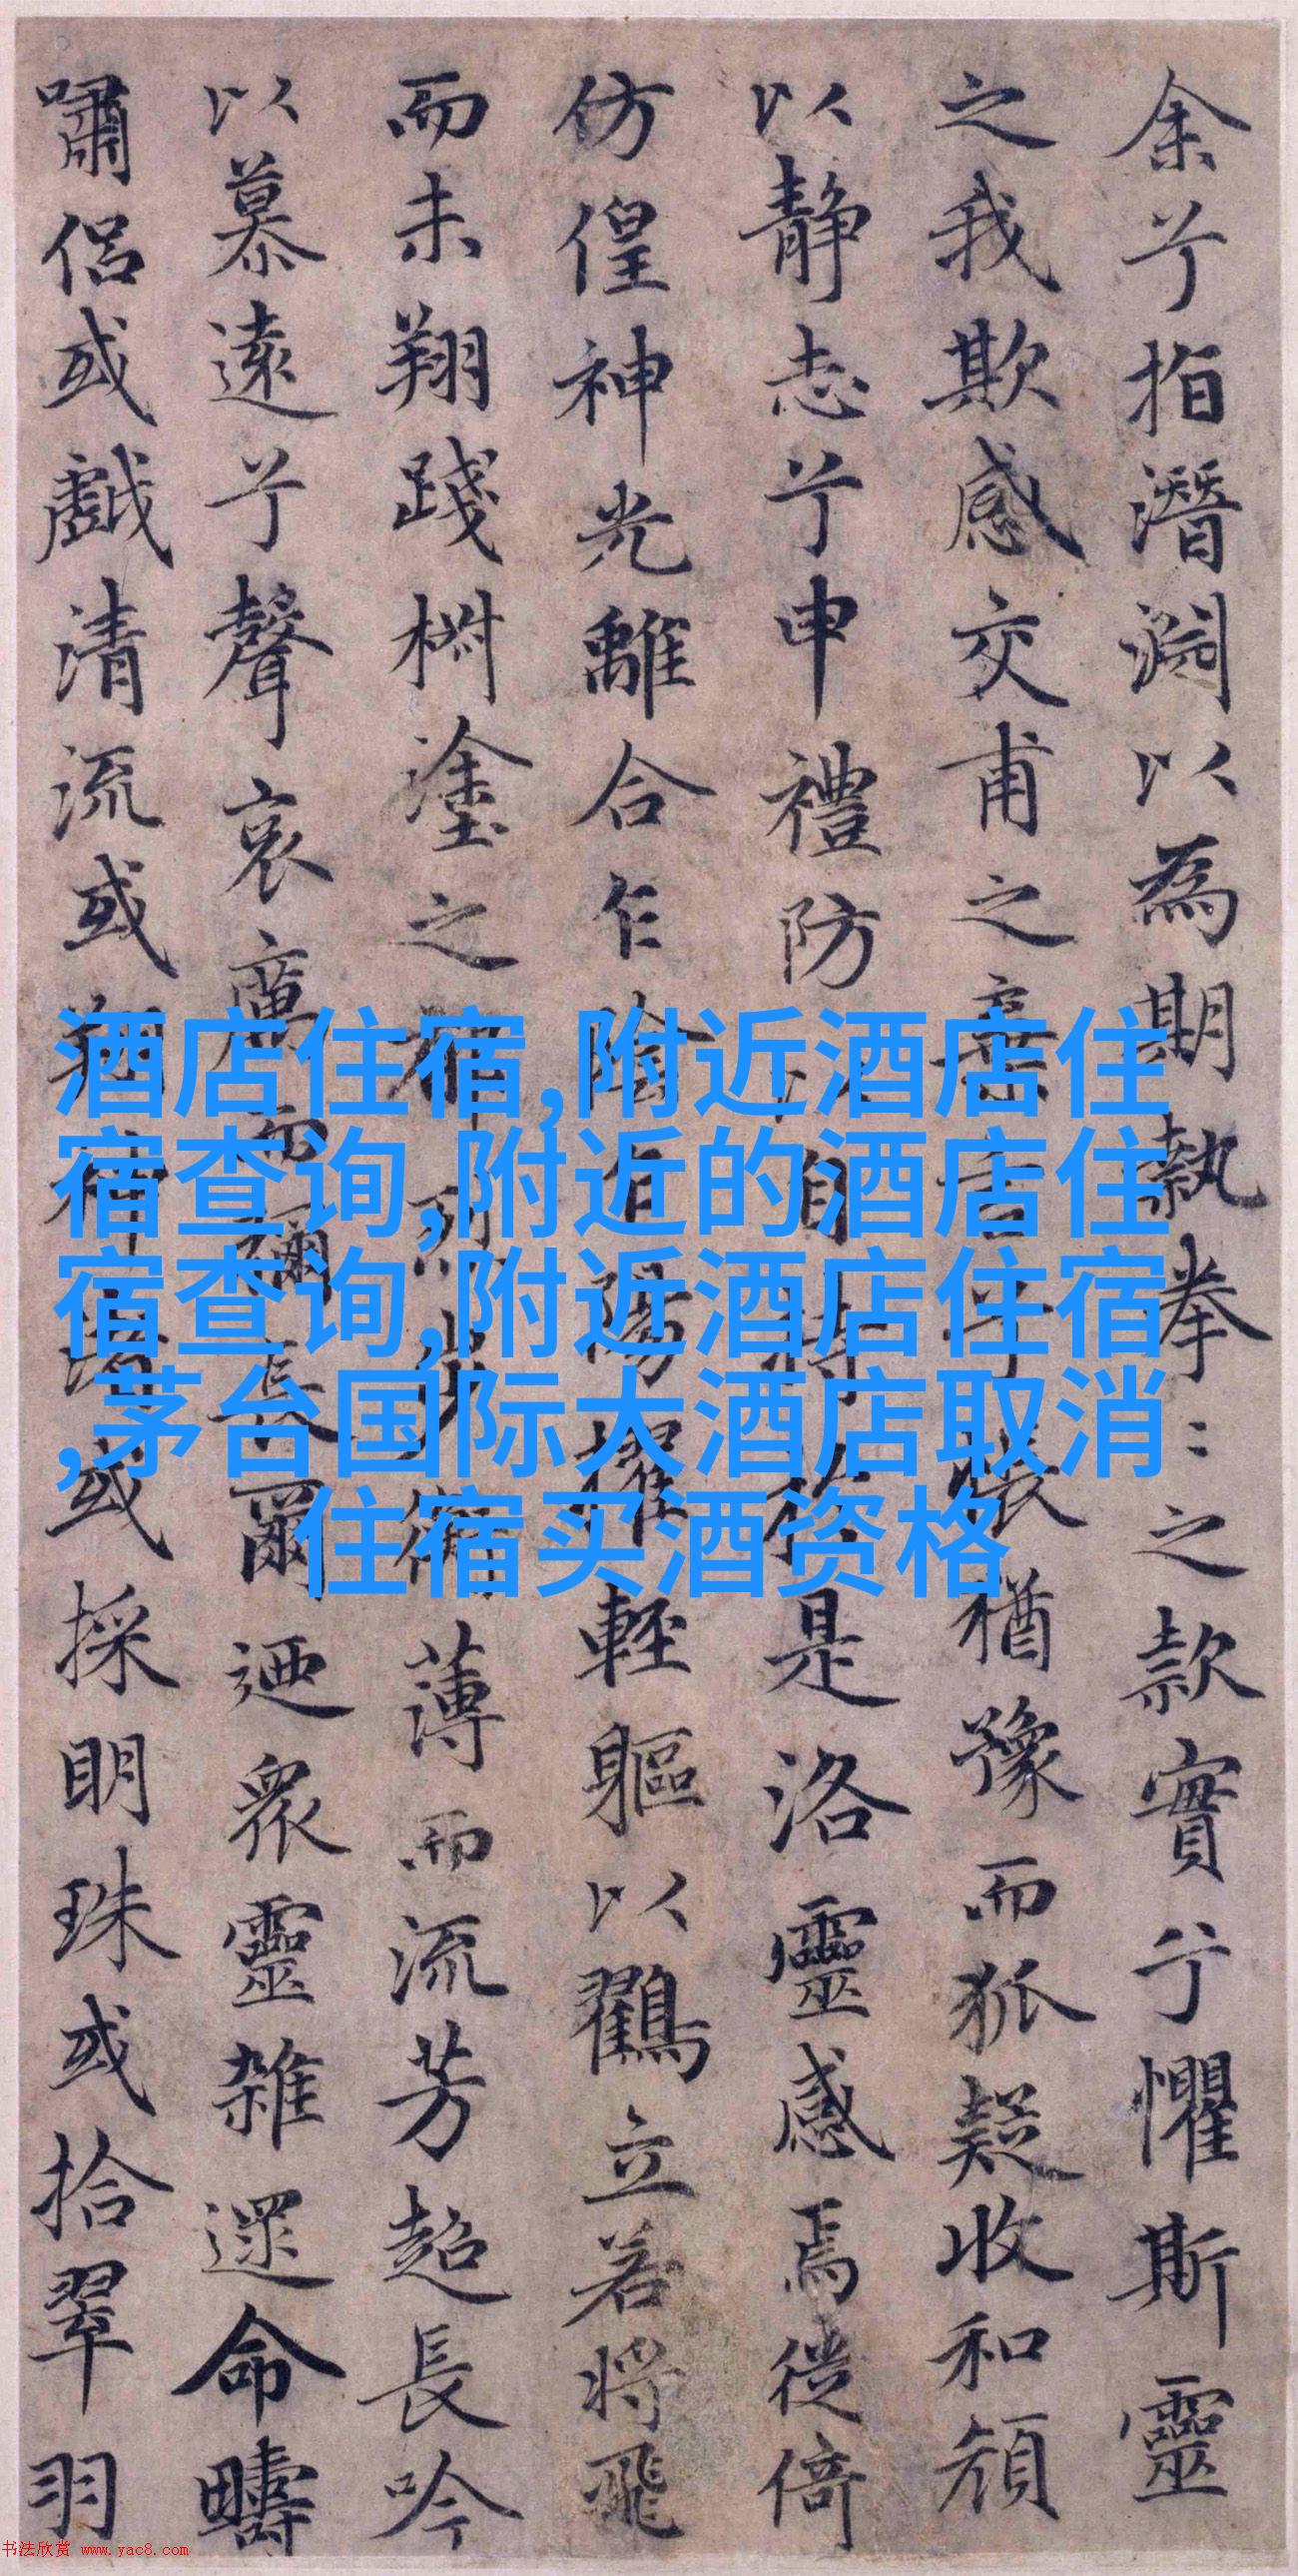 余兮指潛淵以為期執拳〻之款實兮懼斯靈
之我欺感交甫之棄言兮悵猶豫而狐疑收和顏
以靜志兮申禮防以自持於是洛靈感焉徙倚
仿偟神光離合乍陰乍陽擢輕軀以鶴立若將飛
而未翔踐椒塗之郁烈步衡薄而流芳超長吟
以慕遠兮聲哀厲而彌長爾迺眾靈雜遝命疇
嘯侶或戲清流或翔神渚或採明珠或拾翠羽
酒店住宿,附近酒店住
宿查询,附近的酒店住
宿查询,附近酒店住宿
,茅台国际大酒店取消
住宿买酒资格
书法欣赏 www.yac8.com